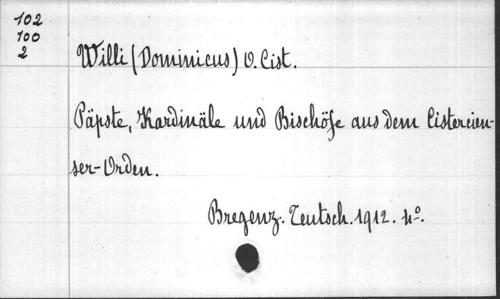 102
100
2
Willi (Dominicus) O. Cist.
Päpste, Kardinäle und Bischöfe aus dem Cistercien-
ser-Orden.
Bregenz. Teutsch. 1912. 4°.